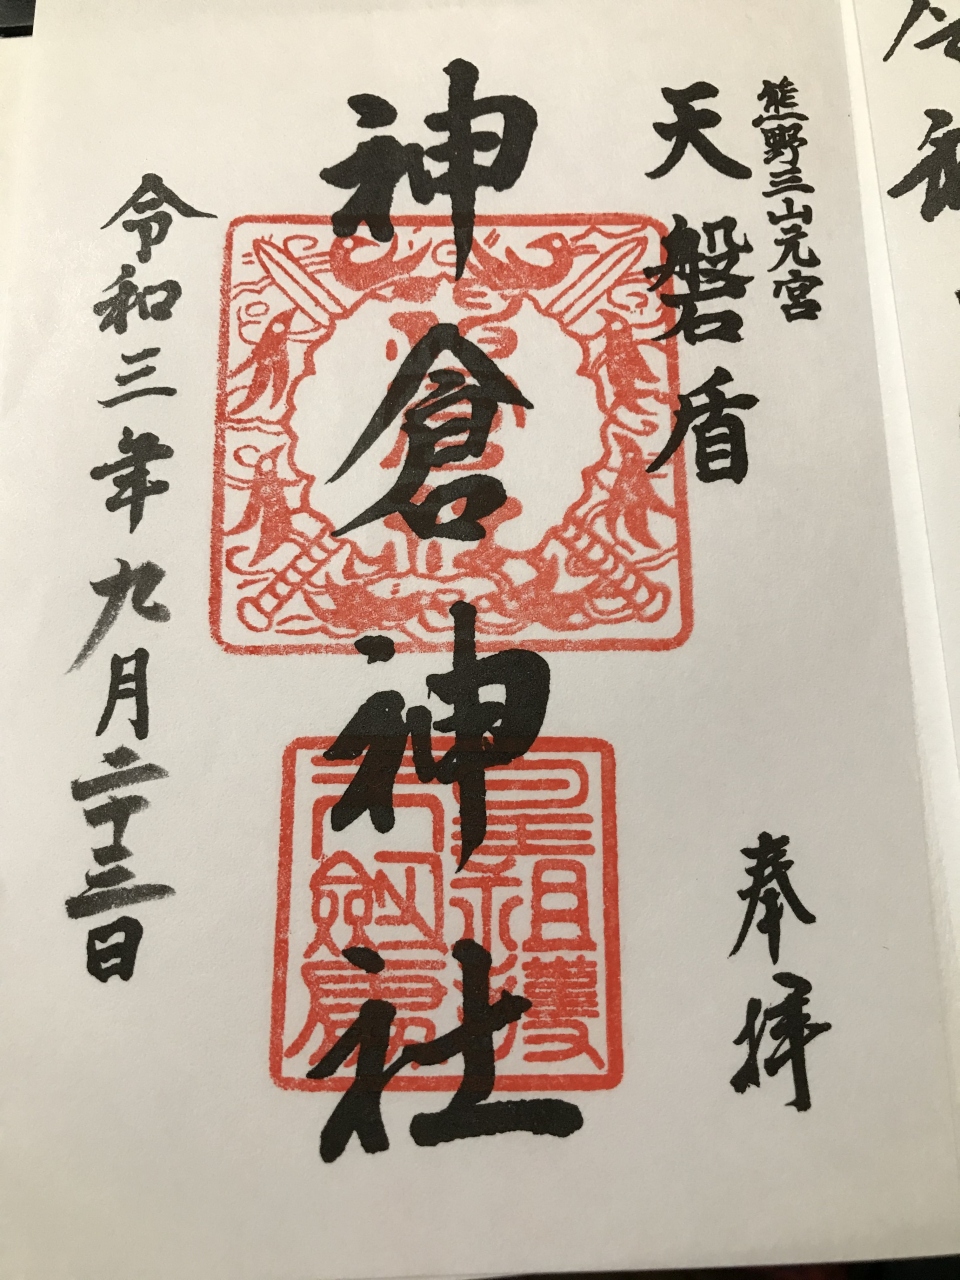 熊野三山元宮
天磐盾
奉拝
神倉神社
令和三年九月二十三日